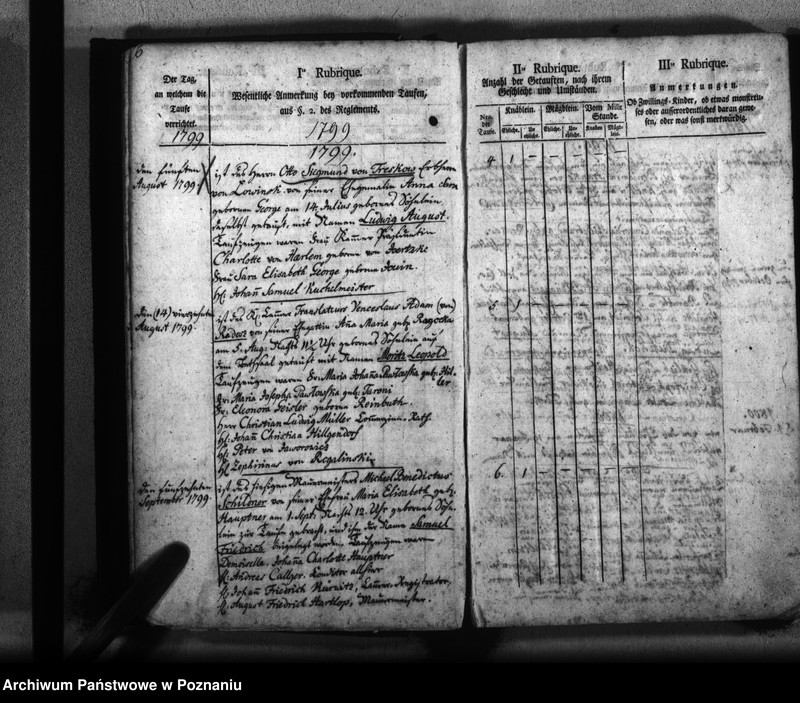 6
Der Tag,
an welchem die
Taufe
verrichtet.
1799
Iᵉ Rubrique.
Wesentliche Anmerkung bey vorkommenden Taufen,
aus §. 2. des Reglements.
1799
1799.
den fünften
August 1799
ist des Herrn Otto Siegmund von Treskow Erbherrn
von Lowinsk von seiner Ehegemalin Anna
gebornen George am 14. Julius gebornes Söhnlein
daselbst getauft, mit Namen Ludwig August.
Taufzeugen waren Frau Kammer Präsidentin
Charlotte von Haerlem geborne von
Frau Sara Elisabeth George geborne
H. Johann Samuel
den (14) vierzehnten
August 1799.
ist des K. Cammer Translateurs Venceslaus Adam (von)
von seiner Ehegattin Anna Maria geb.
am 5. Aug. Nachts Uhr gebornes Söhnlein auf
dem getauft mit Namen Moritz Leopold
Taufzeugen waren Fr. Maria Johanna Pawlowska geb.
Fr. Maria Josepha Pawlowska geb.
Fr. Eleonora Geisler geborne Reinbuth.
Herr Christian Ludwig Müller Rath.
H. Johann Christian Hillgendorf
H. Peter von Jaworowicz
H. Zephirinus von Rogalinski
den fünfzehnten
September 1799
ist des hiesigen Mauermeisters Michael Benedictus
Schildner von seiner Ehefrau Maria Elisabeth geb.
Hauptner am 1. Sept. Uhr gebornes Söhn-
lein zur Taufe gebracht, und ihm der Name Samuel
Friedrich beigelegt worden. Taufzeugen waren
Demoiselle Johanna Charlotte Hauptner
H. Andreas Konditor allhier
H. Johann Friedrich Cammer-Registrator,
H. August Friedrich Hartlop, Mauermeister.
IIᵉ Rubrique.
Anzahl der Getauften, nach ihrem
Geschlecht und Umständen.
Num.
der
Taufe.
Knäblein.
Mägdlein.
Vom Milit.
Stande.
Ehliche.
Un-
ehliche.
Ehliche.
Un-
ehliche.
Knaben
Mägd-
lein.
4 1 – – – – –
5 1 – – – – –
6. 1 – – – – –
IIIᵉ Rubrique.
Anmerkungen.
Ob Zwillings-Kinder, ob etwas monströ-
ses oder ausserordentliches daran gewe-
sen, oder was sonst merkwürdig.
Archiwum Państwowe w Poznaniu